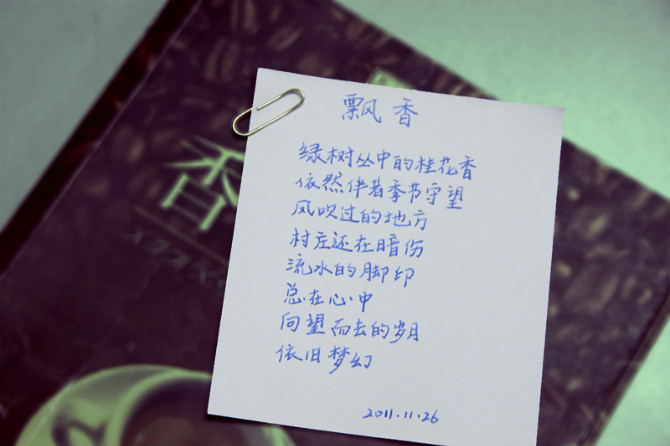 飘香
绿树丛中的桂花香
依然伴着季节守望
风吹过的地方
村庄还在暗伤
流水的脚印
总在心中
向望而去的岁月
依旧梦幻
2011.11.26
香